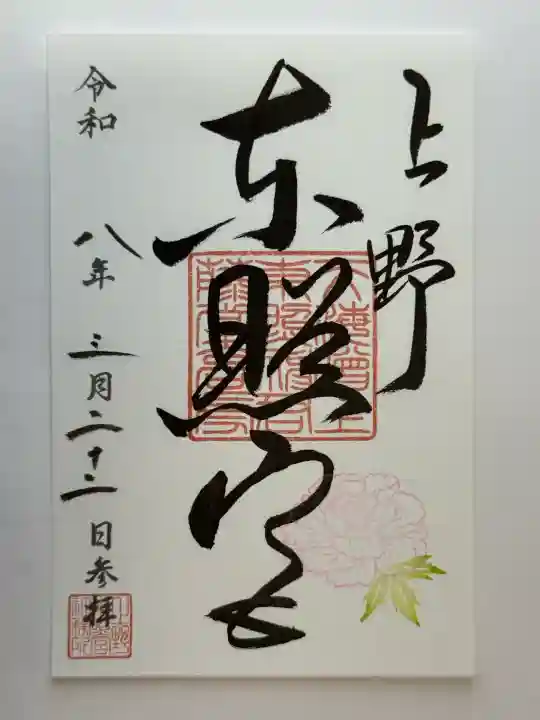 上野
東照宮
令和 八年 三月二十二日参拝